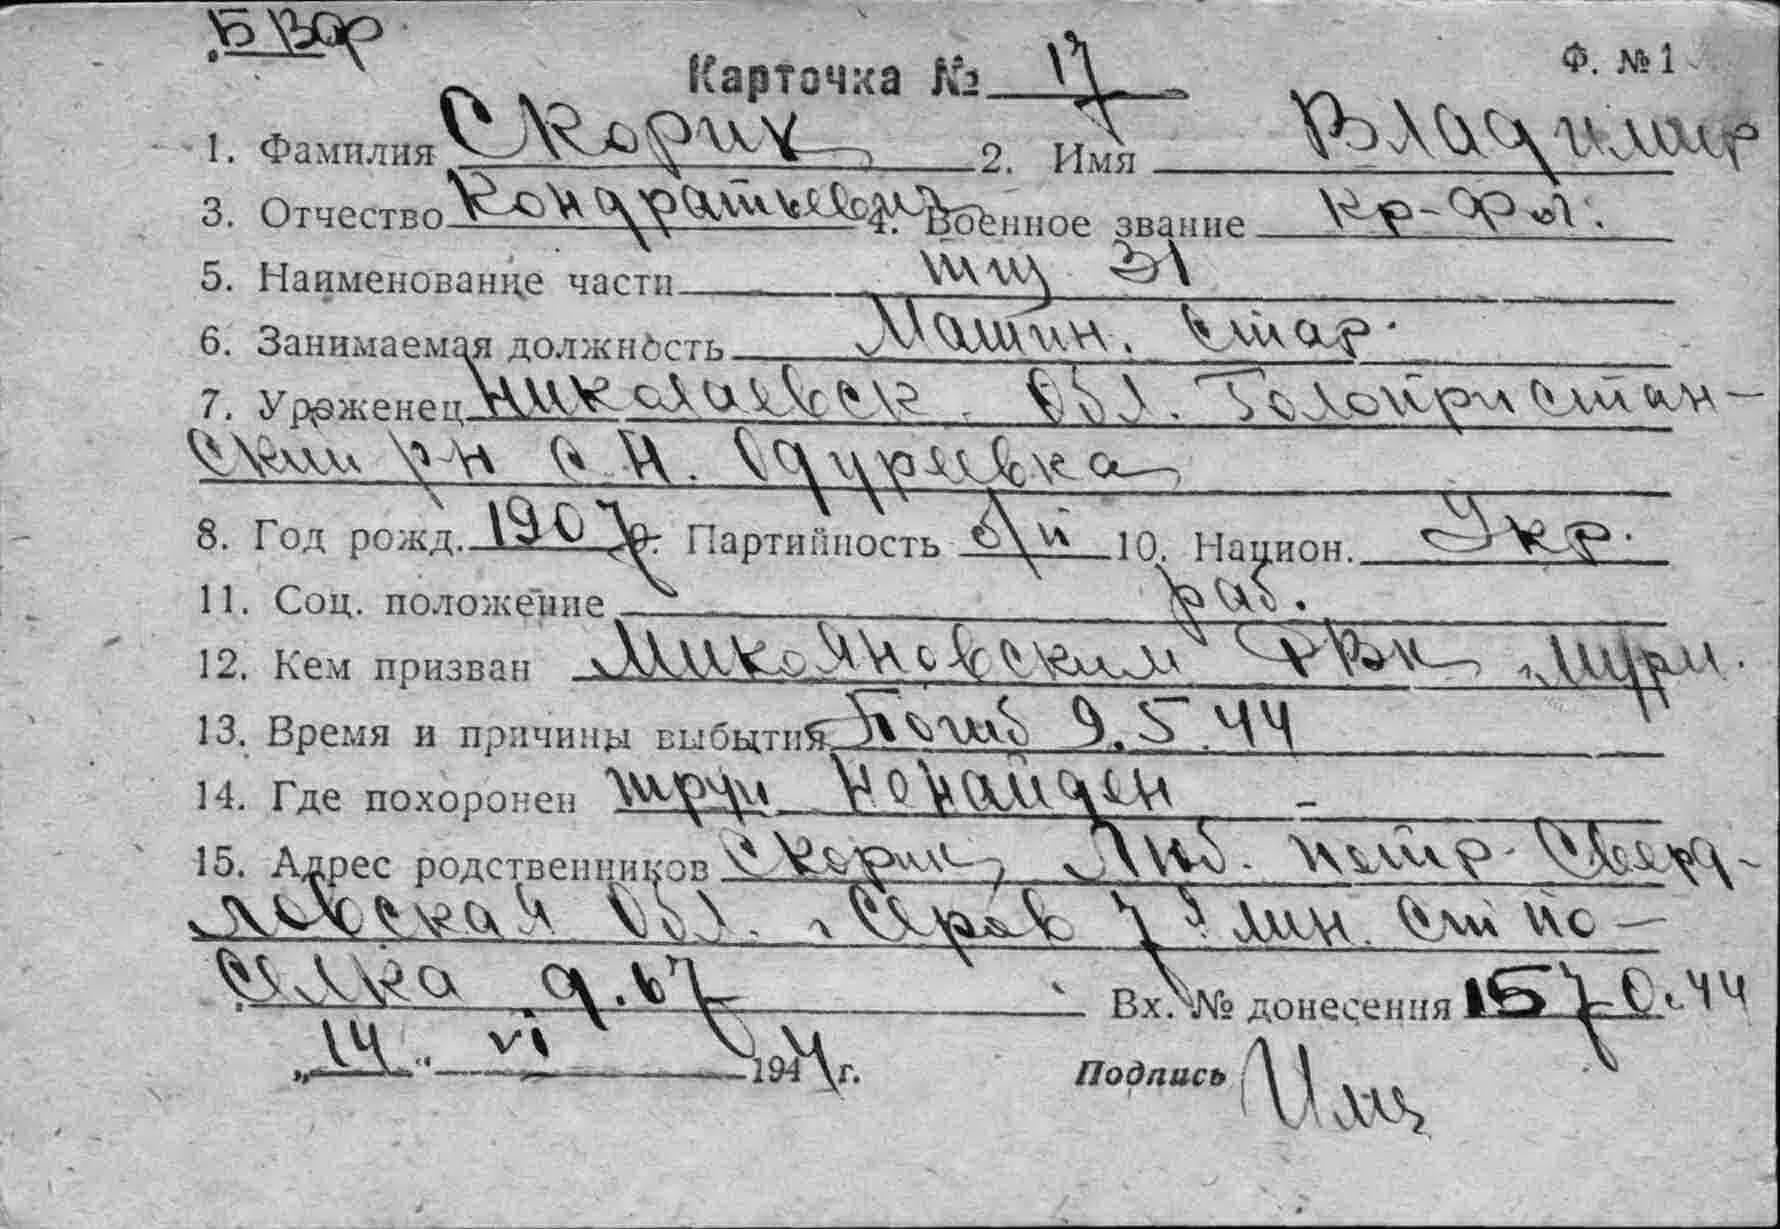 Б Вар
Карточка № 17 Ф. № 1
1. Фамилия Скорик 2. Имя Владимир
3. Отчество Кондратьевич 4. Военное звание кр-фл.
5. Наименование части тщ 31
6. Занимаемая должность Машин. стар.
7. Уроженец Николаевск. обл. Голопристан-
ский р-н с. Н. Одуреевка
8. Год рожд. 1907 г. Партийность б/п 10. Национ. Укр.
11. Соц. положение раб.
12. Кем призван Микояновским РВК Мурм.
13. Время и причины выбытия Погиб 9.5.44
14. Где похоронен труп не найден -
15. Адрес родственников Скорик, Люб. Петр. Сверд-
ловская обл. г Серов 7 лин. ст по-
селка д. 67 Вх. № донесения 1570.44
„14“ VI 1944 г. Подпись